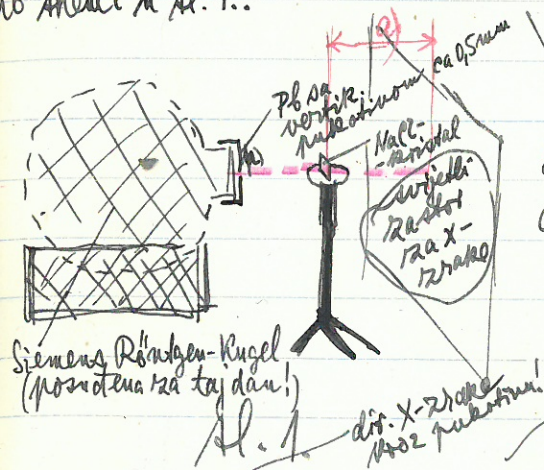 po shemi u sl. 1..
a)
Pb sa
vertik.
pukotinom ca 0,5mm
NaCl-
kristal
svijetli
zastor
za X-
zrake
Siemens Röntgen-Kugel
(posuđena za taj dan!)
sl. 1.
dir. X-zrake
kroz pukotinu!